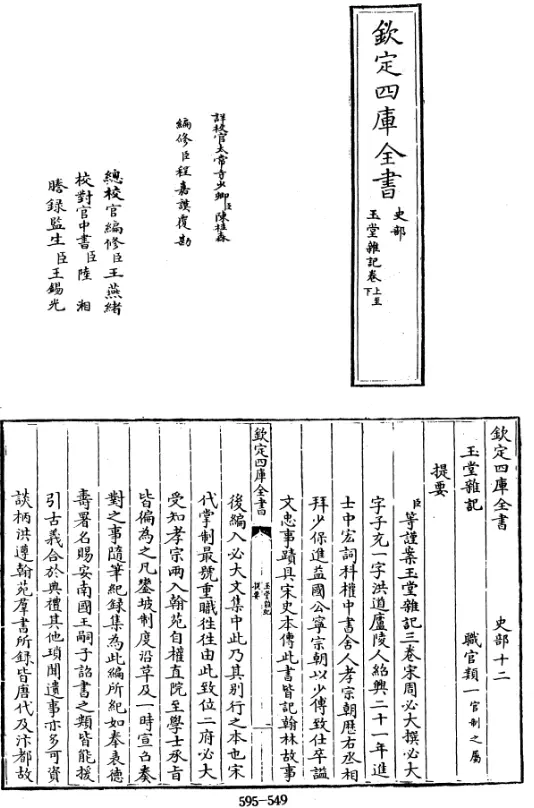 欽定四庫全書
史部
玉堂雜記卷上至下
詳校官太常寺少卿臣陳桂森
編修臣程嘉謨覆勘
總校官編修臣王燕緒
校對官中書臣陸湘
謄録監生臣王錫光
欽定四庫全書 史部十二
玉堂雜記 職官類一官制之屬
提要
臣等謹案玉堂雜記三卷宋周必大撰必大
字子充一字洪道廬陵人紹興二十一年進
士中宏詞科權中書舍人孝宗朝歷右丞相
拜少保進益國公寧宗朝以少傅致仕卒諡
文忠事蹟具宋史本傳此書皆記翰林故事
欽定四庫全書
玉堂雜記
提要
後編入必大文集中此乃其別行之本也宋
代掌制最號重職往往由此致位二府必大
受知孝宗兩入翰苑自權直院至學士承旨
皆徧為之凡鑾坡制度沿革及一時宣召奏
對之事隨筆紀録集為此編所紀如奉表德
壽署名賜安南國王嗣子詔書之類皆能援
引古義合於典禮其他瑣聞遺事亦多可資
談柄洪遵翰苑羣書所録皆唐代及汴都故
595-549